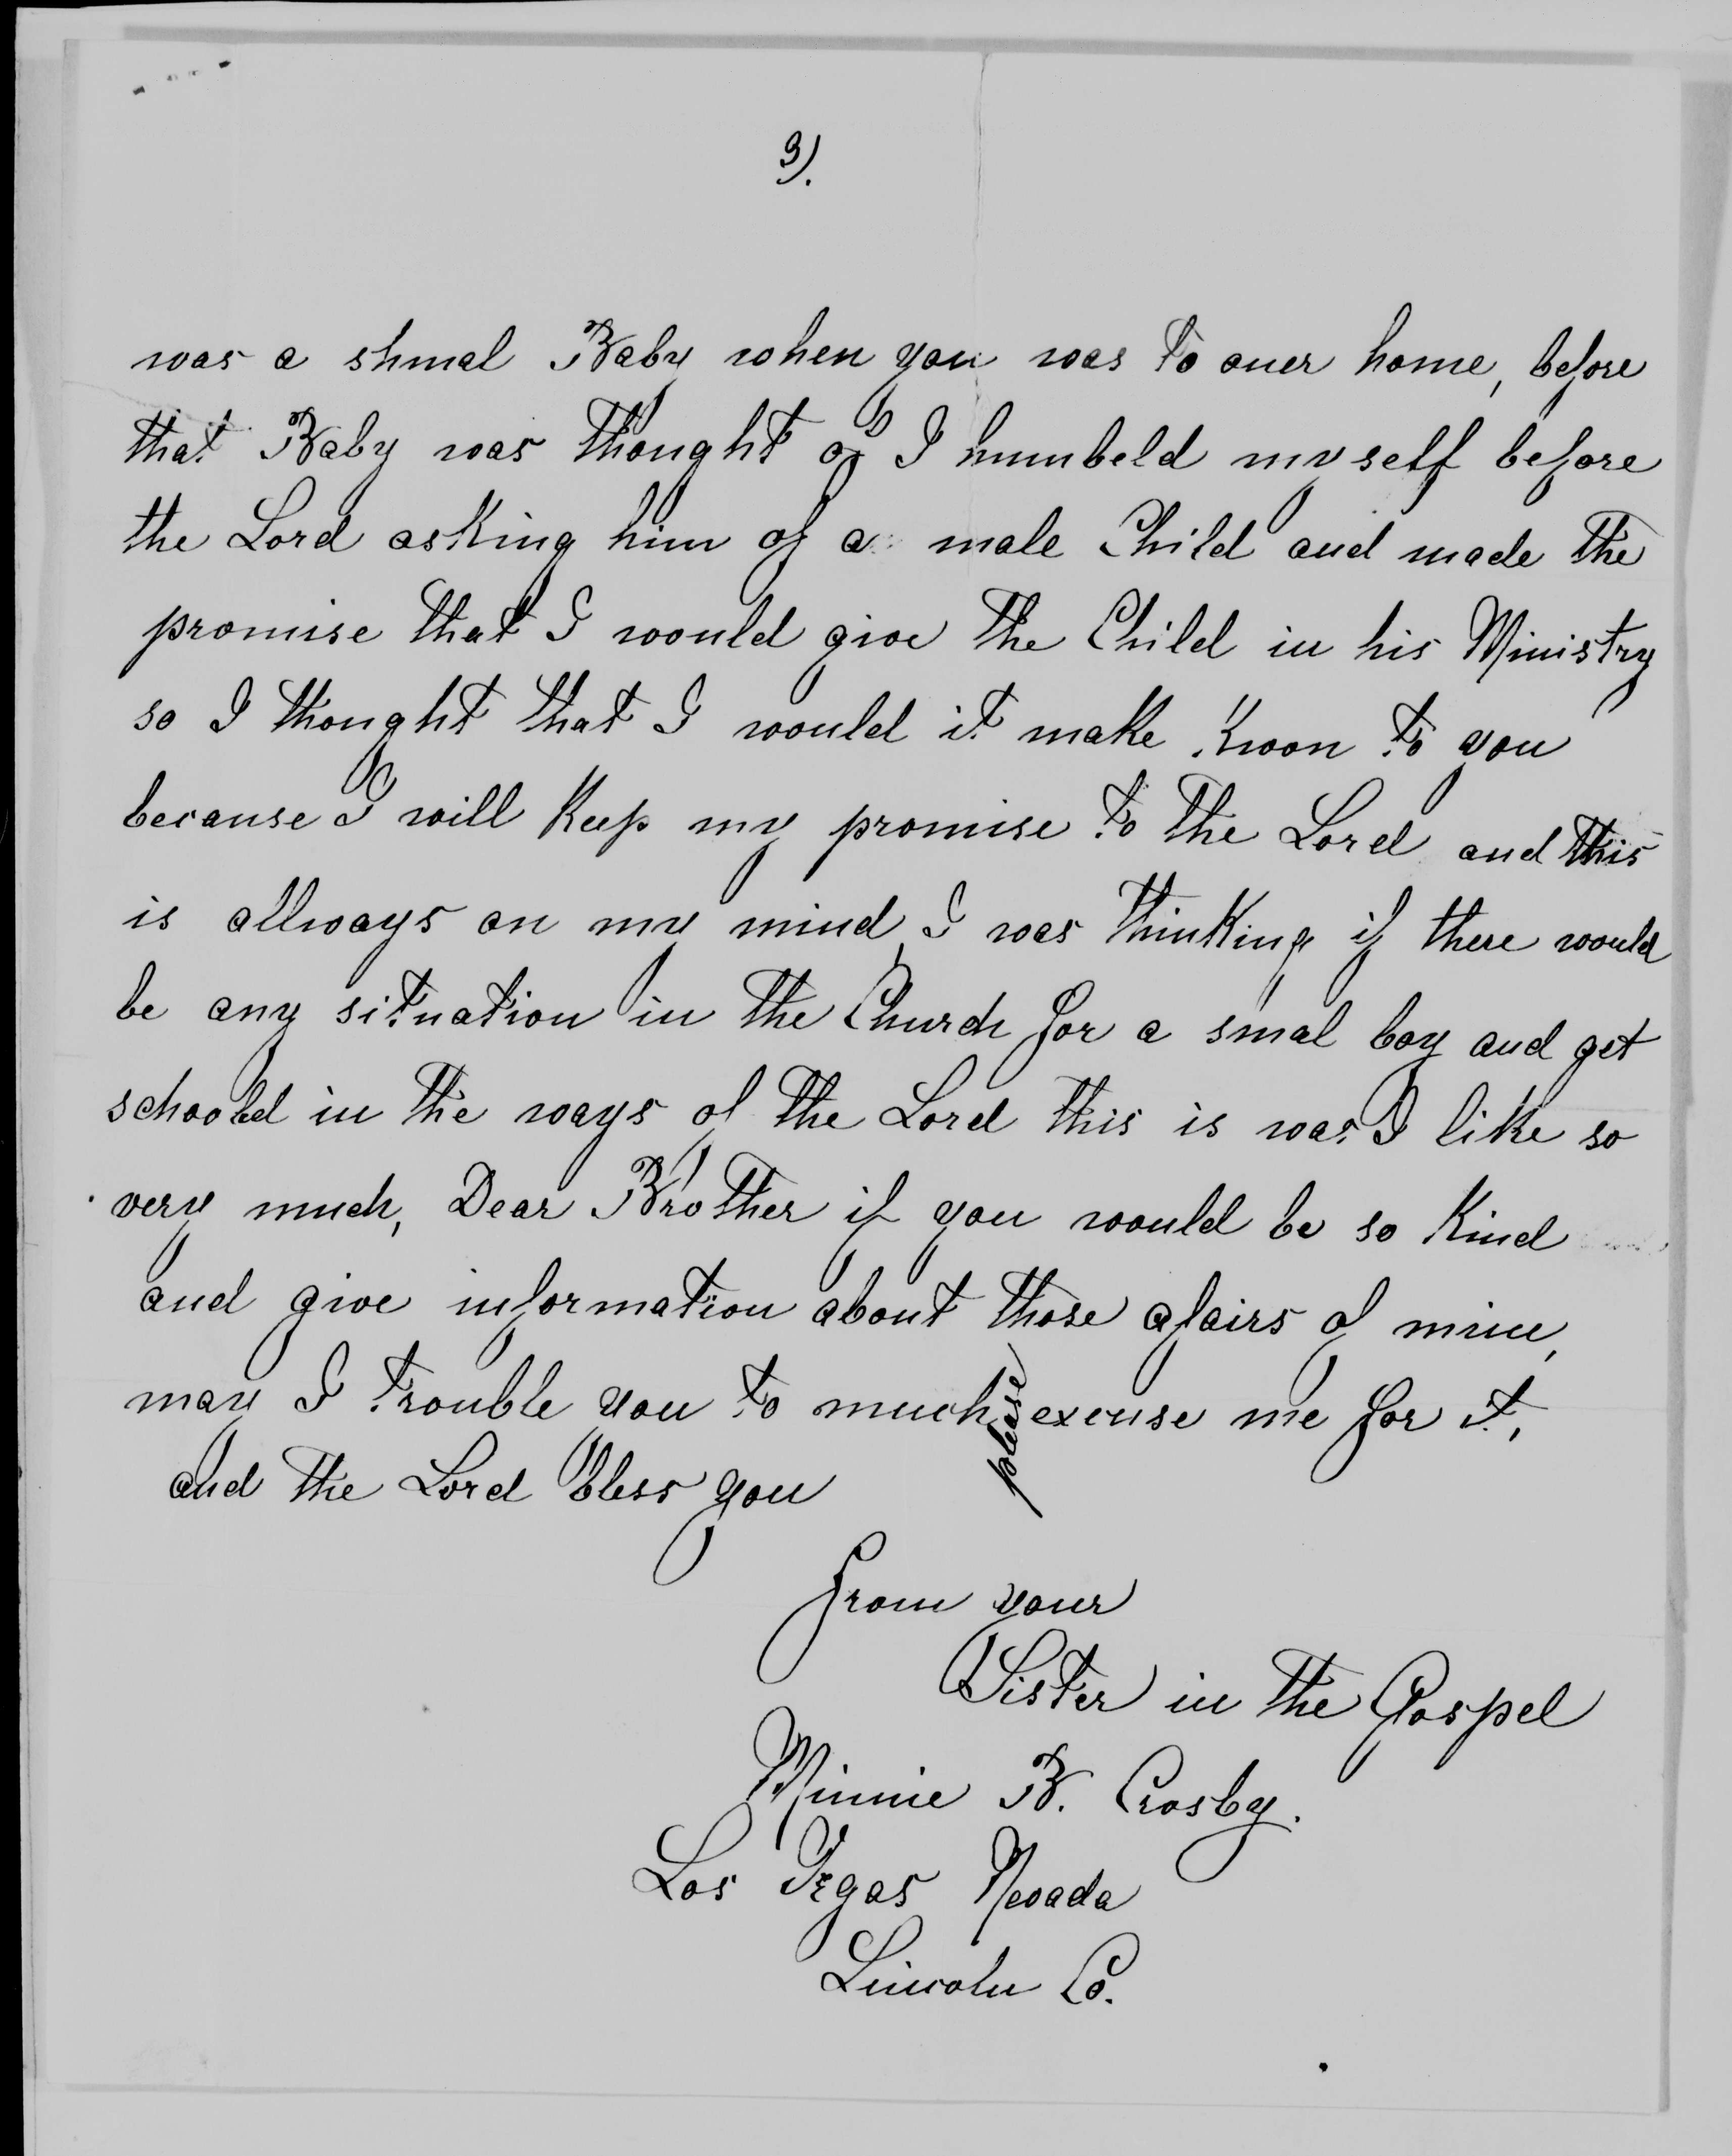 3).
was a shmal Baby when you was to ouer home, before
that Baby was thought of I humbeld my self before
the Lord asking him of a male Child and made the
promise that I would give the Child in his Ministry
so I thought that I would it make Knoon to you
because I will Keep my promise to the Lord and this
is allways on my mind, I was thinking if there would
be any situation in the Church for a smal boy and get
schooled in the ways of the Lord this is was I like so
very much, Dear Brother if you would be so Kind
and give information about those afairs of mine,
may I trouble you to much please excuse me for it,
and the Lord bless you
From your
Sister in the Gospel
Minnie B. Crosby.
Las Vegas Nevada
Lincoln Co.